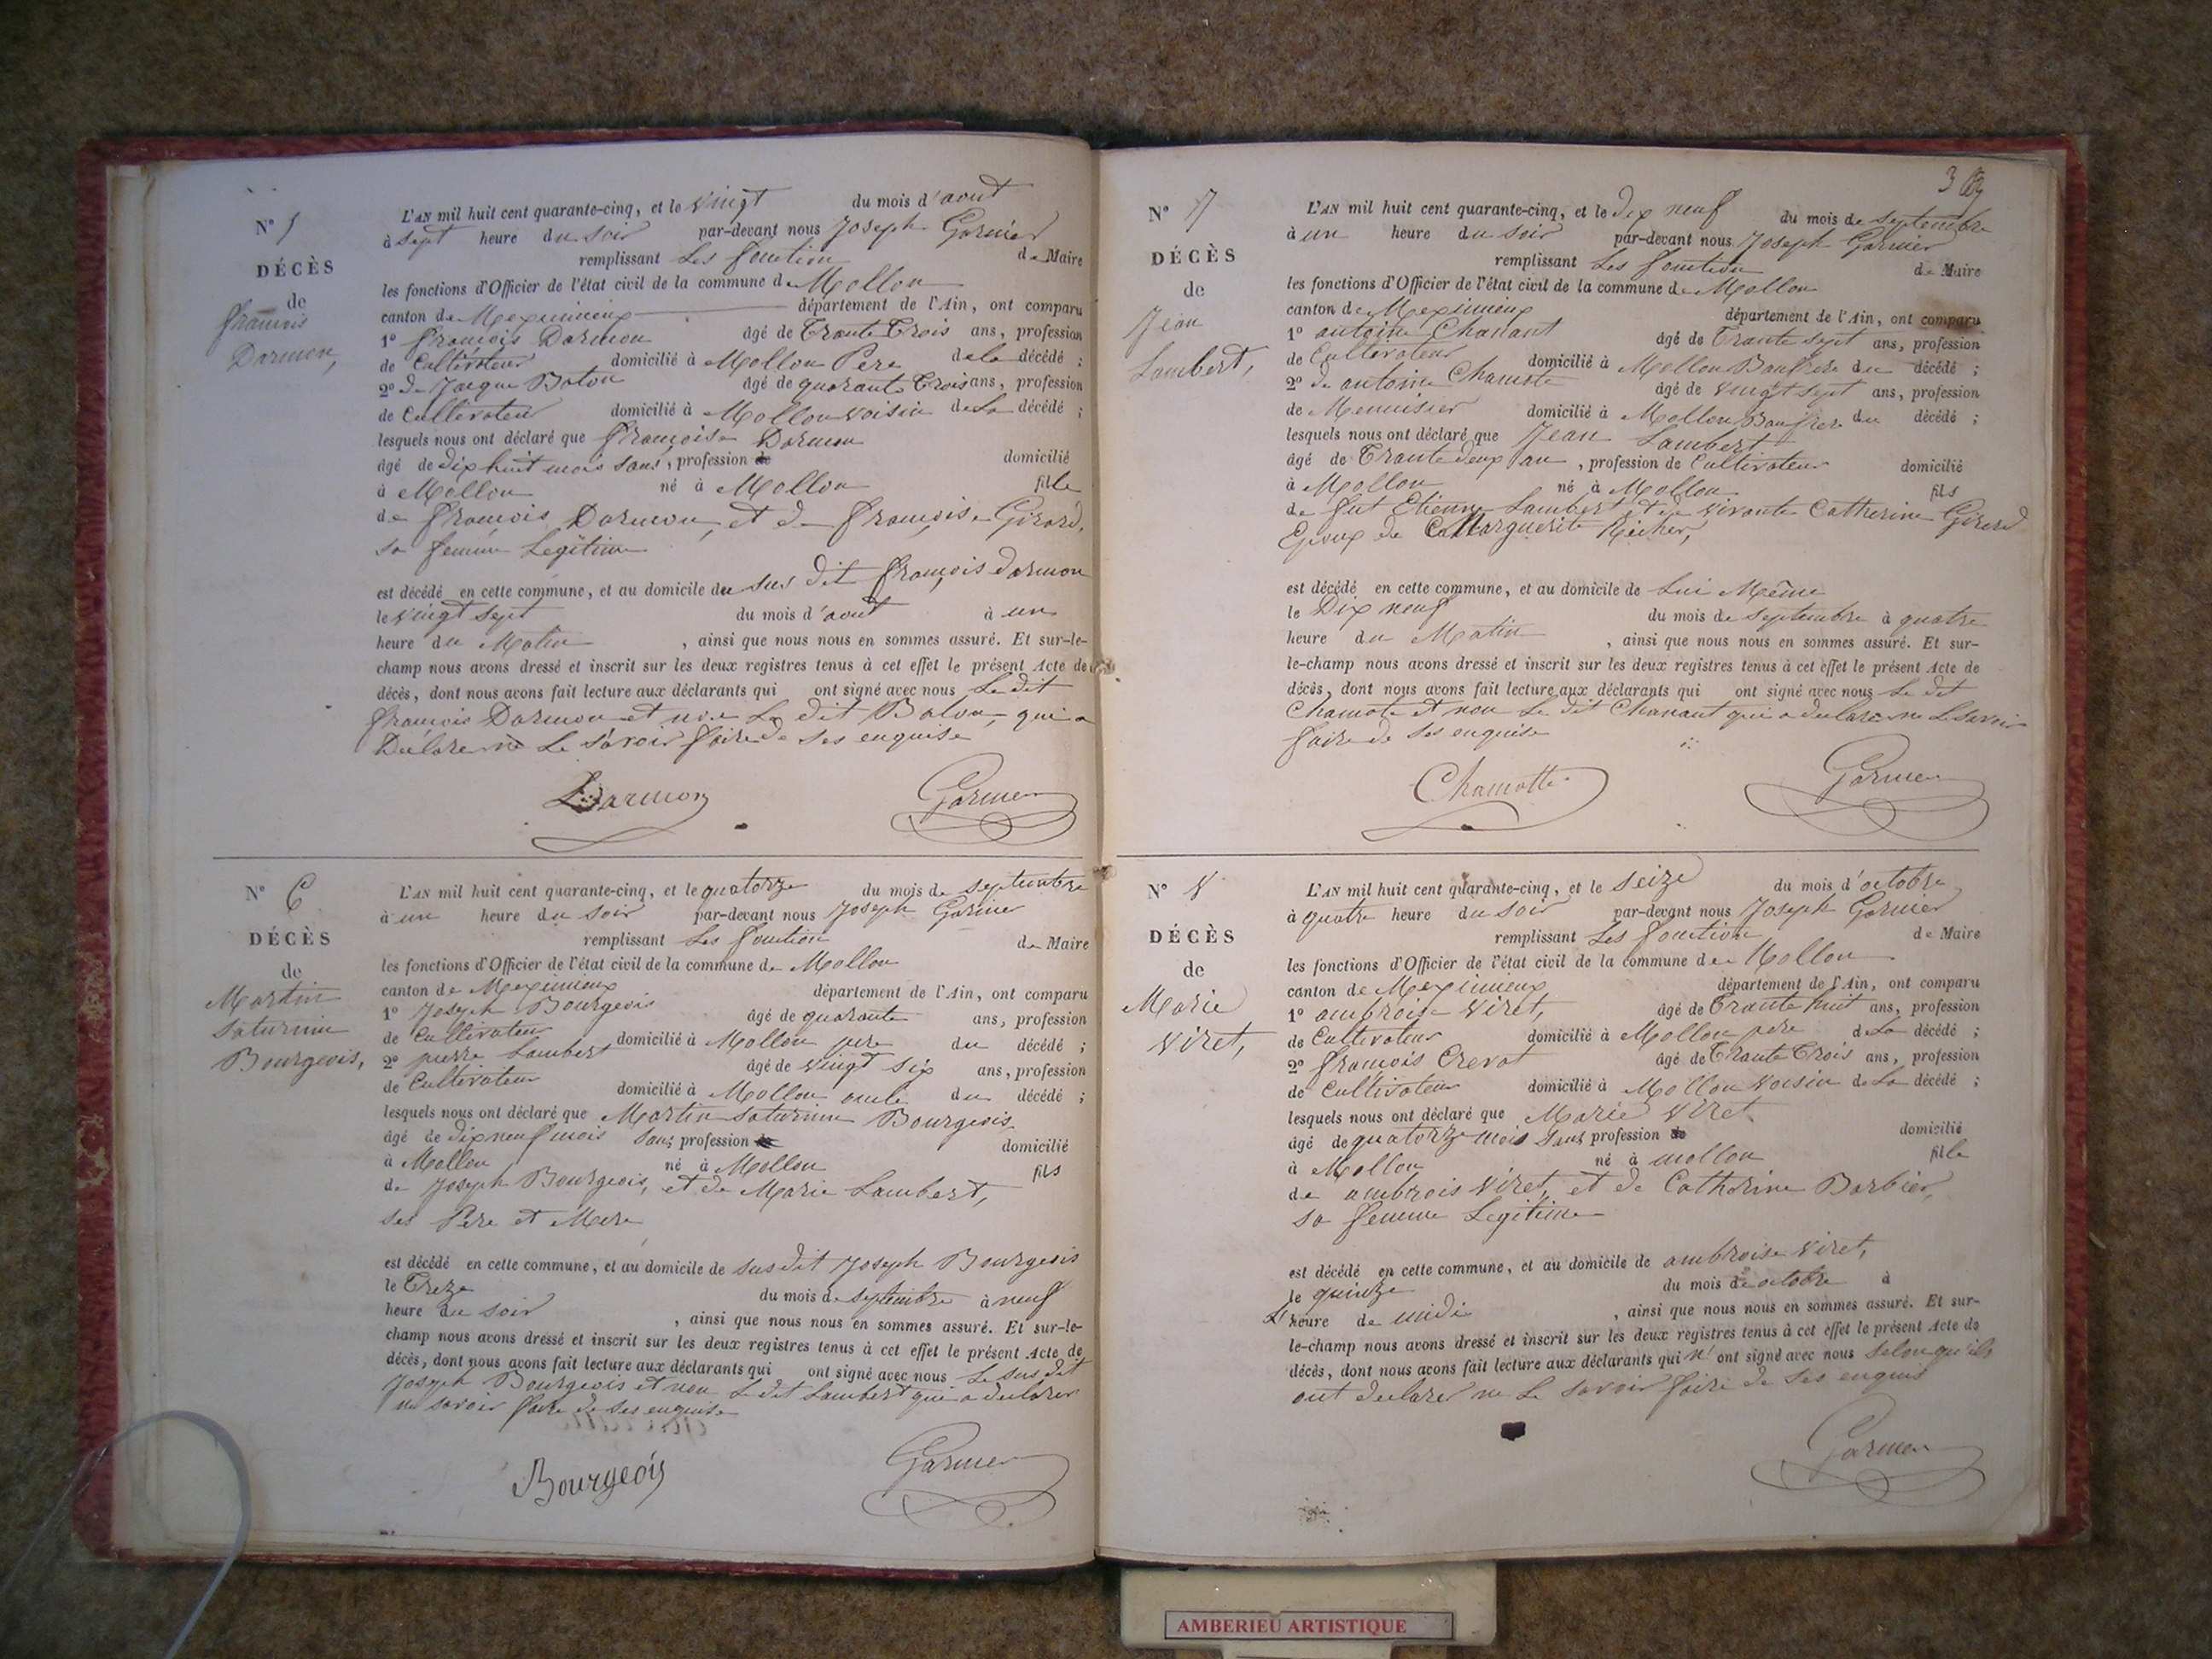 N° 5
DÉCÈS
de
françois
Darmon,
L'AN mil huit cent quarante-cinq, et le vingt du mois d'aout
à sept heure du soir par-devant nous Joseph Garnier
remplissant Les fonction de Maire
les fonctions d'Officier de l'état civil de la commune de Mollon
canton de Meximieux département de l'Ain, ont comparu
1° françois Darmon âgé de Trante Trois ans, profession
de Cultivateur domicilié à Mollon Pere de la décédé ;
2° de Jacque Baton âgé de quarante Trois ans, profession
de Cultivateur domicilié à Mollon voisin de La décédé ;
lesquels nous ont déclaré que françoise Darmon
âgé de dix huit mois sans, profession de domicilié
à Mollon né à Mollon fille
de françois Darmon, et de françoise Girard,
sa femme Legitime
est décédé en cette commune, et au domicile du sus dit françois Darmon
le vingt sept du mois d'aout à un
heure du Matin , ainsi que nous nous en sommes assuré. Et sur-le-
champ nous avons dressé et inscrit sur les deux registres tenus à cet effet le présent Acte de
décès, dont nous avons fait lecture aux déclarants qui ont signé avec nous Le dit
françois Darmon et non Le dit Baton, qui a
Déclare ne Le savoir faire de ses enquise
Darmon Garnier
N° 6
DÉCÈS
de
Martin
Saturnin
Bourgeois,
L'AN mil huit cent quarante-cinq, et le quatorze du mois de septembre
à un heure du soir par-devant nous Joseph Garnier
remplissant Les fonction de Maire
les fonctions d'Officier de l'état civil de la commune de Mollon
canton de Meximieux département de l'Ain, ont comparu
1° Joseph Bourgeois âgé de quarante ans, profession
de Cultivateur domicilié à Mollon pere du décédé ;
2° pierre Lambert âgé de vingt six ans, profession
de Cultivateur domicilié à Mollon oncle du décédé ;
lesquels nous ont déclaré que Martin Saturnin Bourgeois
âgé de dix neuf mois sans profession de domicilié
à Mollon né à Mollon fils
de Joseph Bourgeois, et de Marie Lambert,
ses Père et Mere
est décédé en cette commune, et au domicile de susdit Joseph Bourgeois
le Treze du mois de septembre à neuf
heure du soir , ainsi que nous nous en sommes assuré. Et sur-le-
champ nous avons dressé et inscrit sur les deux registres tenus à cet effet le présent Acte de
décès, dont nous avons fait lecture aux déclarants qui ont signé avec nous Le sus dit
Joseph Bourgeois et non Le dit Lambert qui a declarer
ne savoir faire de ses enquise
Bourgeois Garnier
3
N° 7
DÉCÈS
de
Jean
Lambert,
L'AN mil huit cent quarante-cinq, et le dix neuf du mois de septembre
à un heure du soir par-devant nous Joseph Garnier
remplissant Les fonction de Maire
les fonctions d'Officier de l'état civil de la commune de Mollon
canton de Meximieux département de l'Ain, ont comparu
1° antoine Chanant âgé de Trante sept ans, profession
de Cultivateur domicilié à Mollon Baufrere du décédé ;
2° de antoine Chamote âgé de vingt sept ans, profession
de Menuisier domicilié à Mollon Baufrere du décédé ;
lesquels nous ont déclaré que Jean Lambert
âgé de Trante deux an , profession de Cultivateur domicilié
à Mollon né à Mollon fils
de fut Etienne Lambert et de vivante Catherine Girard
Epoux de Marguerite Richer,
est décédé en cette commune, et au domicile de Lui Même
le Dix neuf du mois de septembre à quatre
heure du Matin , ainsi que nous nous en sommes assuré. Et sur-
le-champ nous avons dressé et inscrit sur les deux registres tenus à cet effet le présent Acte de
décès, dont nous avons fait lecture aux déclarants qui ont signé avec nous Le dit
Chamote et non Le dit Chanant qui a declare ne Le savoir
faire de ses enquise
Chamotte Garnier
N° 8
DÉCÈS
de
Marie
Viret,
L'AN mil huit cent quarante-cinq, et le seize du mois d'octobre
à quatre heure du soir par-devant nous Joseph Garnier
remplissant Les fonction de Maire
les fonctions d'Officier de l'état civil de la commune de Mollon
canton de Meximieux département de l'Ain, ont comparu
1° ambroise Viret, âgé de Trante huit ans, profession
de Cultivateur domicilié à Mollon pere de La décédé ;
2° françois Crevat âgé de Trante Trois ans, profession
de Cultivateur domicilié à Mollon voisin de La décédé ;
lesquels nous ont déclaré que Marie Viret
âgé de quatorze mois sans profession de domicilié
à Mollon né à mollon fille
de ambrois Viret, et de Catherine Barbier,
sa femme Legitime
est décédé en cette commune, et au domicile de ambroise Viret,
le quinze du mois de octobre à
L'heure de midi , ainsi que nous nous en sommes assuré. Et sur-
le-champ nous avons dressé et inscrit sur les deux registres tenus à cet effet le présent Acte de
décès, dont nous avons fait lecture aux déclarants qui n'ont signé avec nous selon qu'ils
ont declarer ne Le savoir faire de ses enquis
Garnier
AMBERIEU ARTISTIQUE